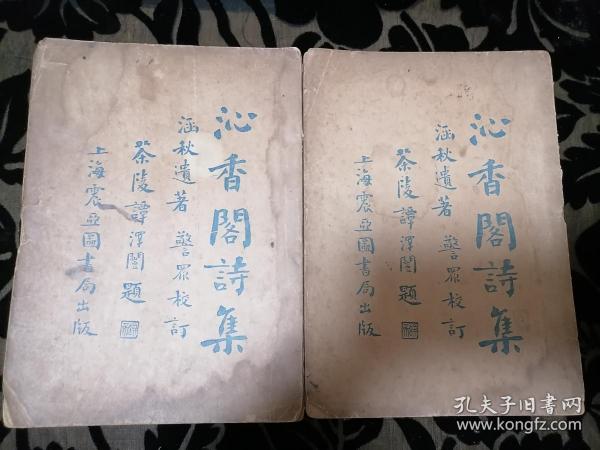 沁香閣詩集
涵秋遺著 警眾校訂
茶陵譚澤闓題
上海震亞圖書局出版
沁香閣詩集
涵秋遺著 警眾校訂
茶陵譚澤闓題
上海震亞圖書局出版
孔夫子旧书网
www.kongfz.com